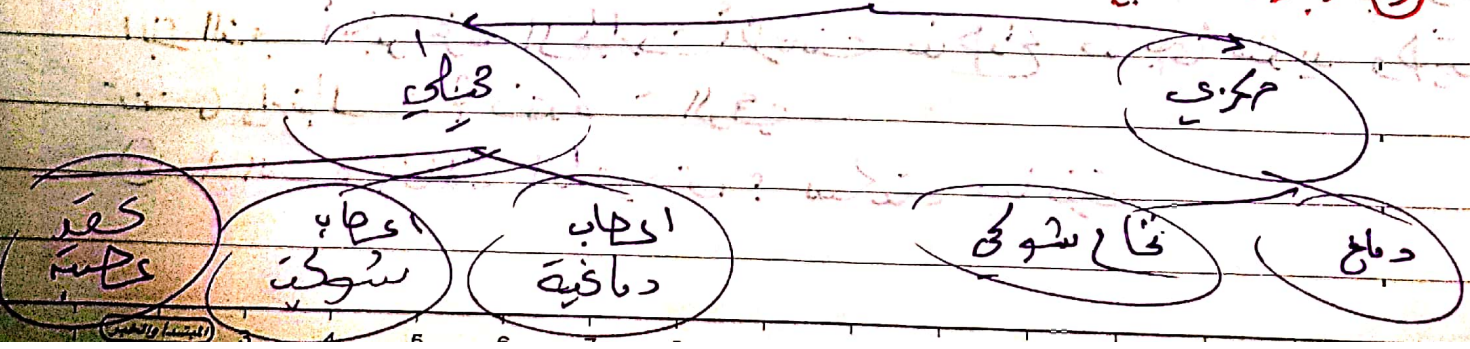 مركزي
محيطي
دماغ
نخاع شوكي
اعصاب
دماغية
اعصاب
شوكية
عقد
عصبية
3 4 5 6 7 8